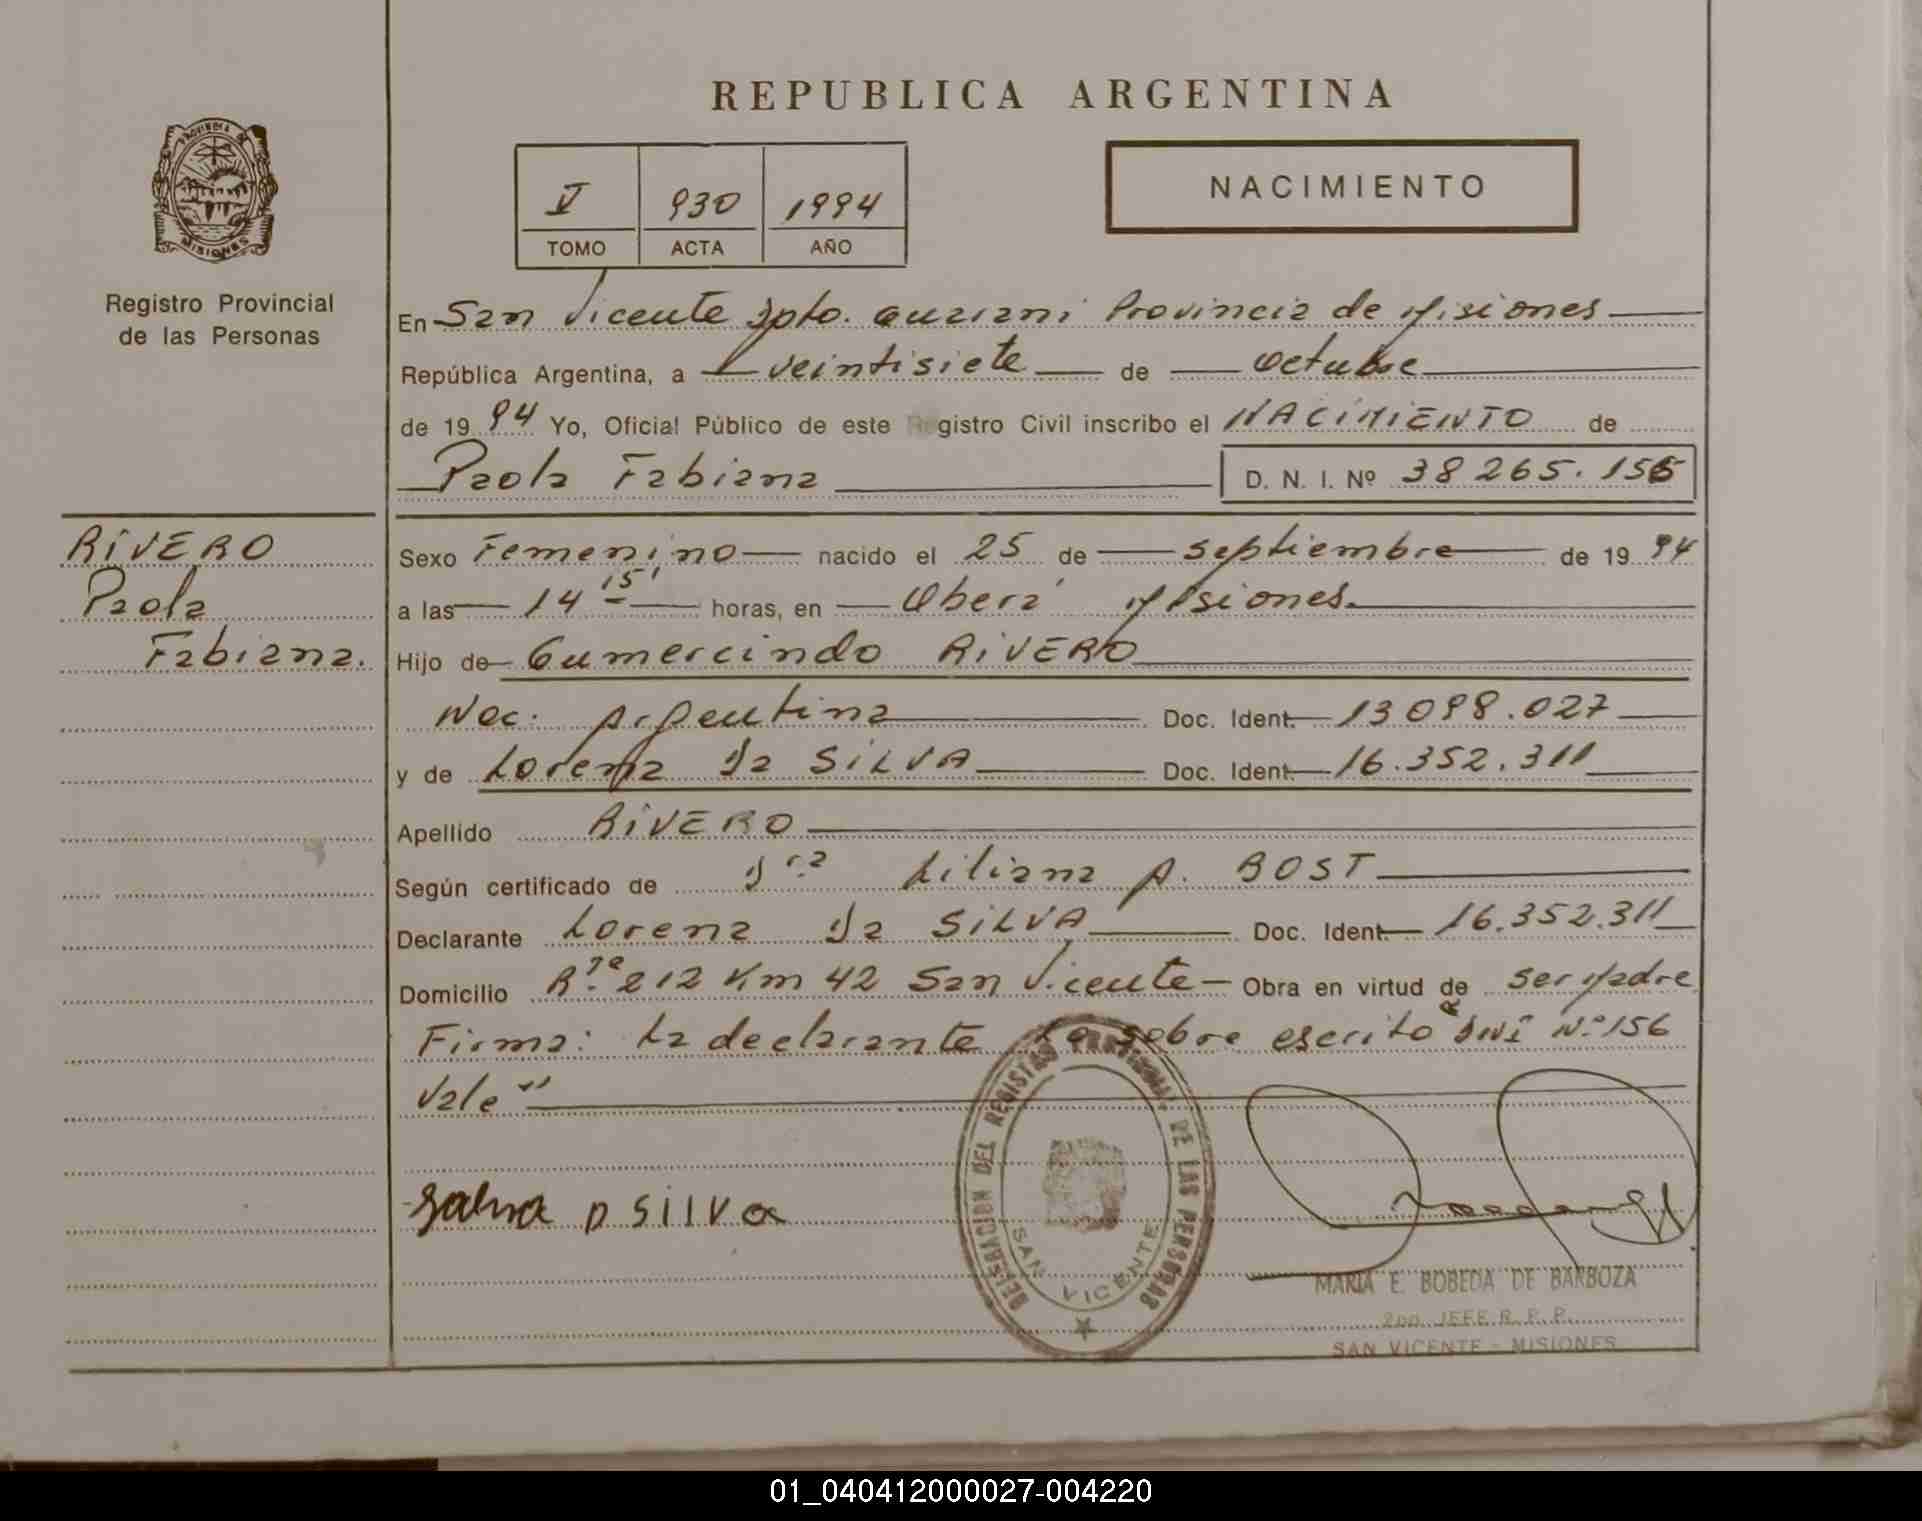 REPUBLICA ARGENTINA
PROVINCIA DE
MISIONES
Registro Provincial
de las Personas
V 930 1994
TOMO ACTA AÑO
NACIMIENTO
En San Vicente Dpto. Guarani Provincia de Misiones
República Argentina, a veintisiete de Octubre
de 1994 Yo, Oficial Público de este Registro Civil inscribo el NACIMIENTO de
Paola Fabiana D. N. I. Nº 38265.156
RIVERO
Paola
Fabiana.
Sexo Femenino nacido el 25 de septiembre de 1994
a las 14 15' horas, en Oberá Misiones.
Hijo de Gumercindo RIVERO
Nac. Argentina Doc. Ident. 13098.027
y de Lorena Da SILVA Doc. Ident. 16.352.311
Apellido RIVERO
Según certificado de Dra Liliana A. BOST
Declarante Lorena Da SILVA Doc. Ident. 16.352.311
Domicilio R. 212 Km 42 San Vicente - Obra en virtud de ser Madre
Firma: La declarante Lo sobre escrito DNI Nº 156
Vale"
D SilVa
DELEGACION DEL REGISTRO PROVINCIAL DE LAS PERSONAS
SAN VICENTE
MARIA E. BOBEDA DE BARBOZA
2DO. JEFE R. P. P.
SAN VICENTE - MISIONES
01_040412000027-004220